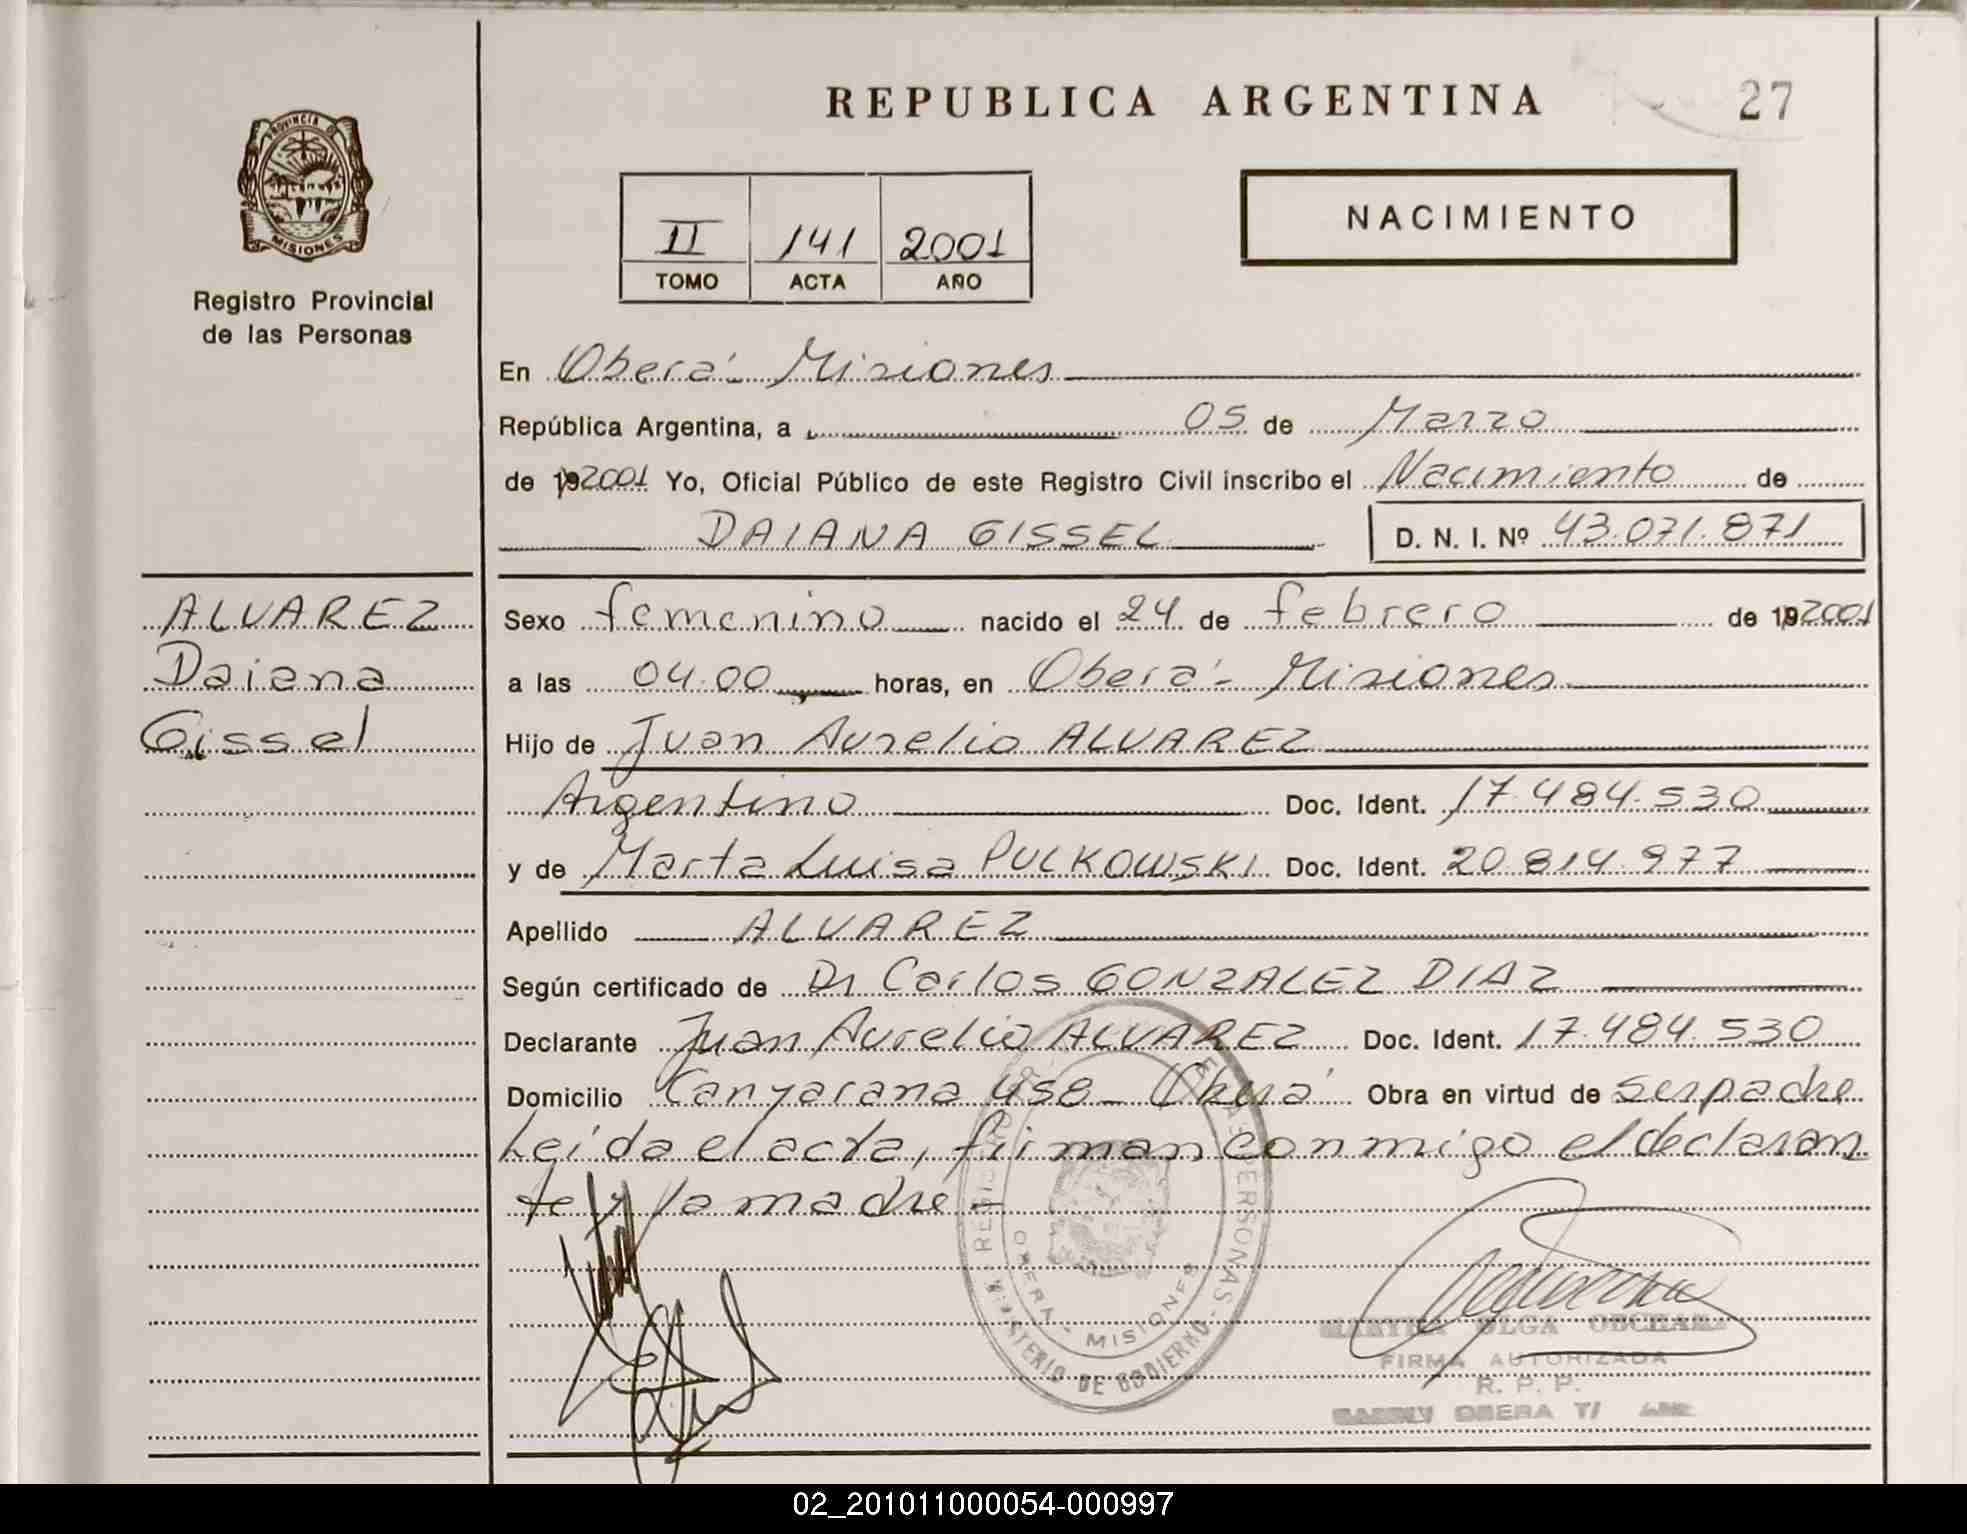 REPUBLICA ARGENTINA
27
PROVINCIA DE
MISIONES
Registro Provincial
de las Personas
II 141 2001
TOMO ACTA AÑO
NACIMIENTO
En Oberá - Misiones
República Argentina, a 05 de Marzo
de 192001 Yo, Oficial Público de este Registro Civil inscribo el Nacimiento de
DAIANA GISSEL D. N. I. Nº 43.071.871
ALVAREZ
Daiana
Gissel
Sexo femenino nacido el 24 de febrero de 192001
a las 04.00 horas, en Oberá - Misiones
Hijo de Juan Aurelio ALVAREZ
Argentino Doc. Ident. 17.484.530
y de Marta Luisa PULKOWSKI Doc. Ident. 20.814.977
Apellido ALVAREZ
Según certificado de Dr Carlos GONZALEZ DIAZ
Declarante Juan Aurelio ALVAREZ Doc. Ident. 17.484.530
Domicilio Oberá Obra en virtud de ser padre
Leída el acta, firman conmigo el declaran
te y la madre -
REGISTRO DE LAS PERSONAS
OBERA - MISIONES
MINISTERIO DE GOBIERNO
OLGA
FIRMA AUTORIZADA
R. P. P.
OBERA
02_201011000054-000997